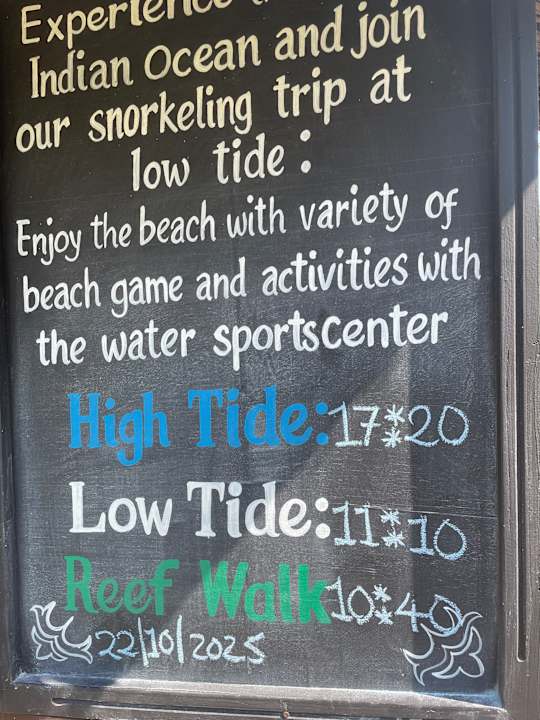 Experience
Indian Ocean and join
our snorkeling trip at
low tide:
Enjoy the beach with variety of
beach game and activities with
the water sportscenter
High Tide: 17:20
Low Tide: 11:10
Reef Walk 10:40
22/10/2025